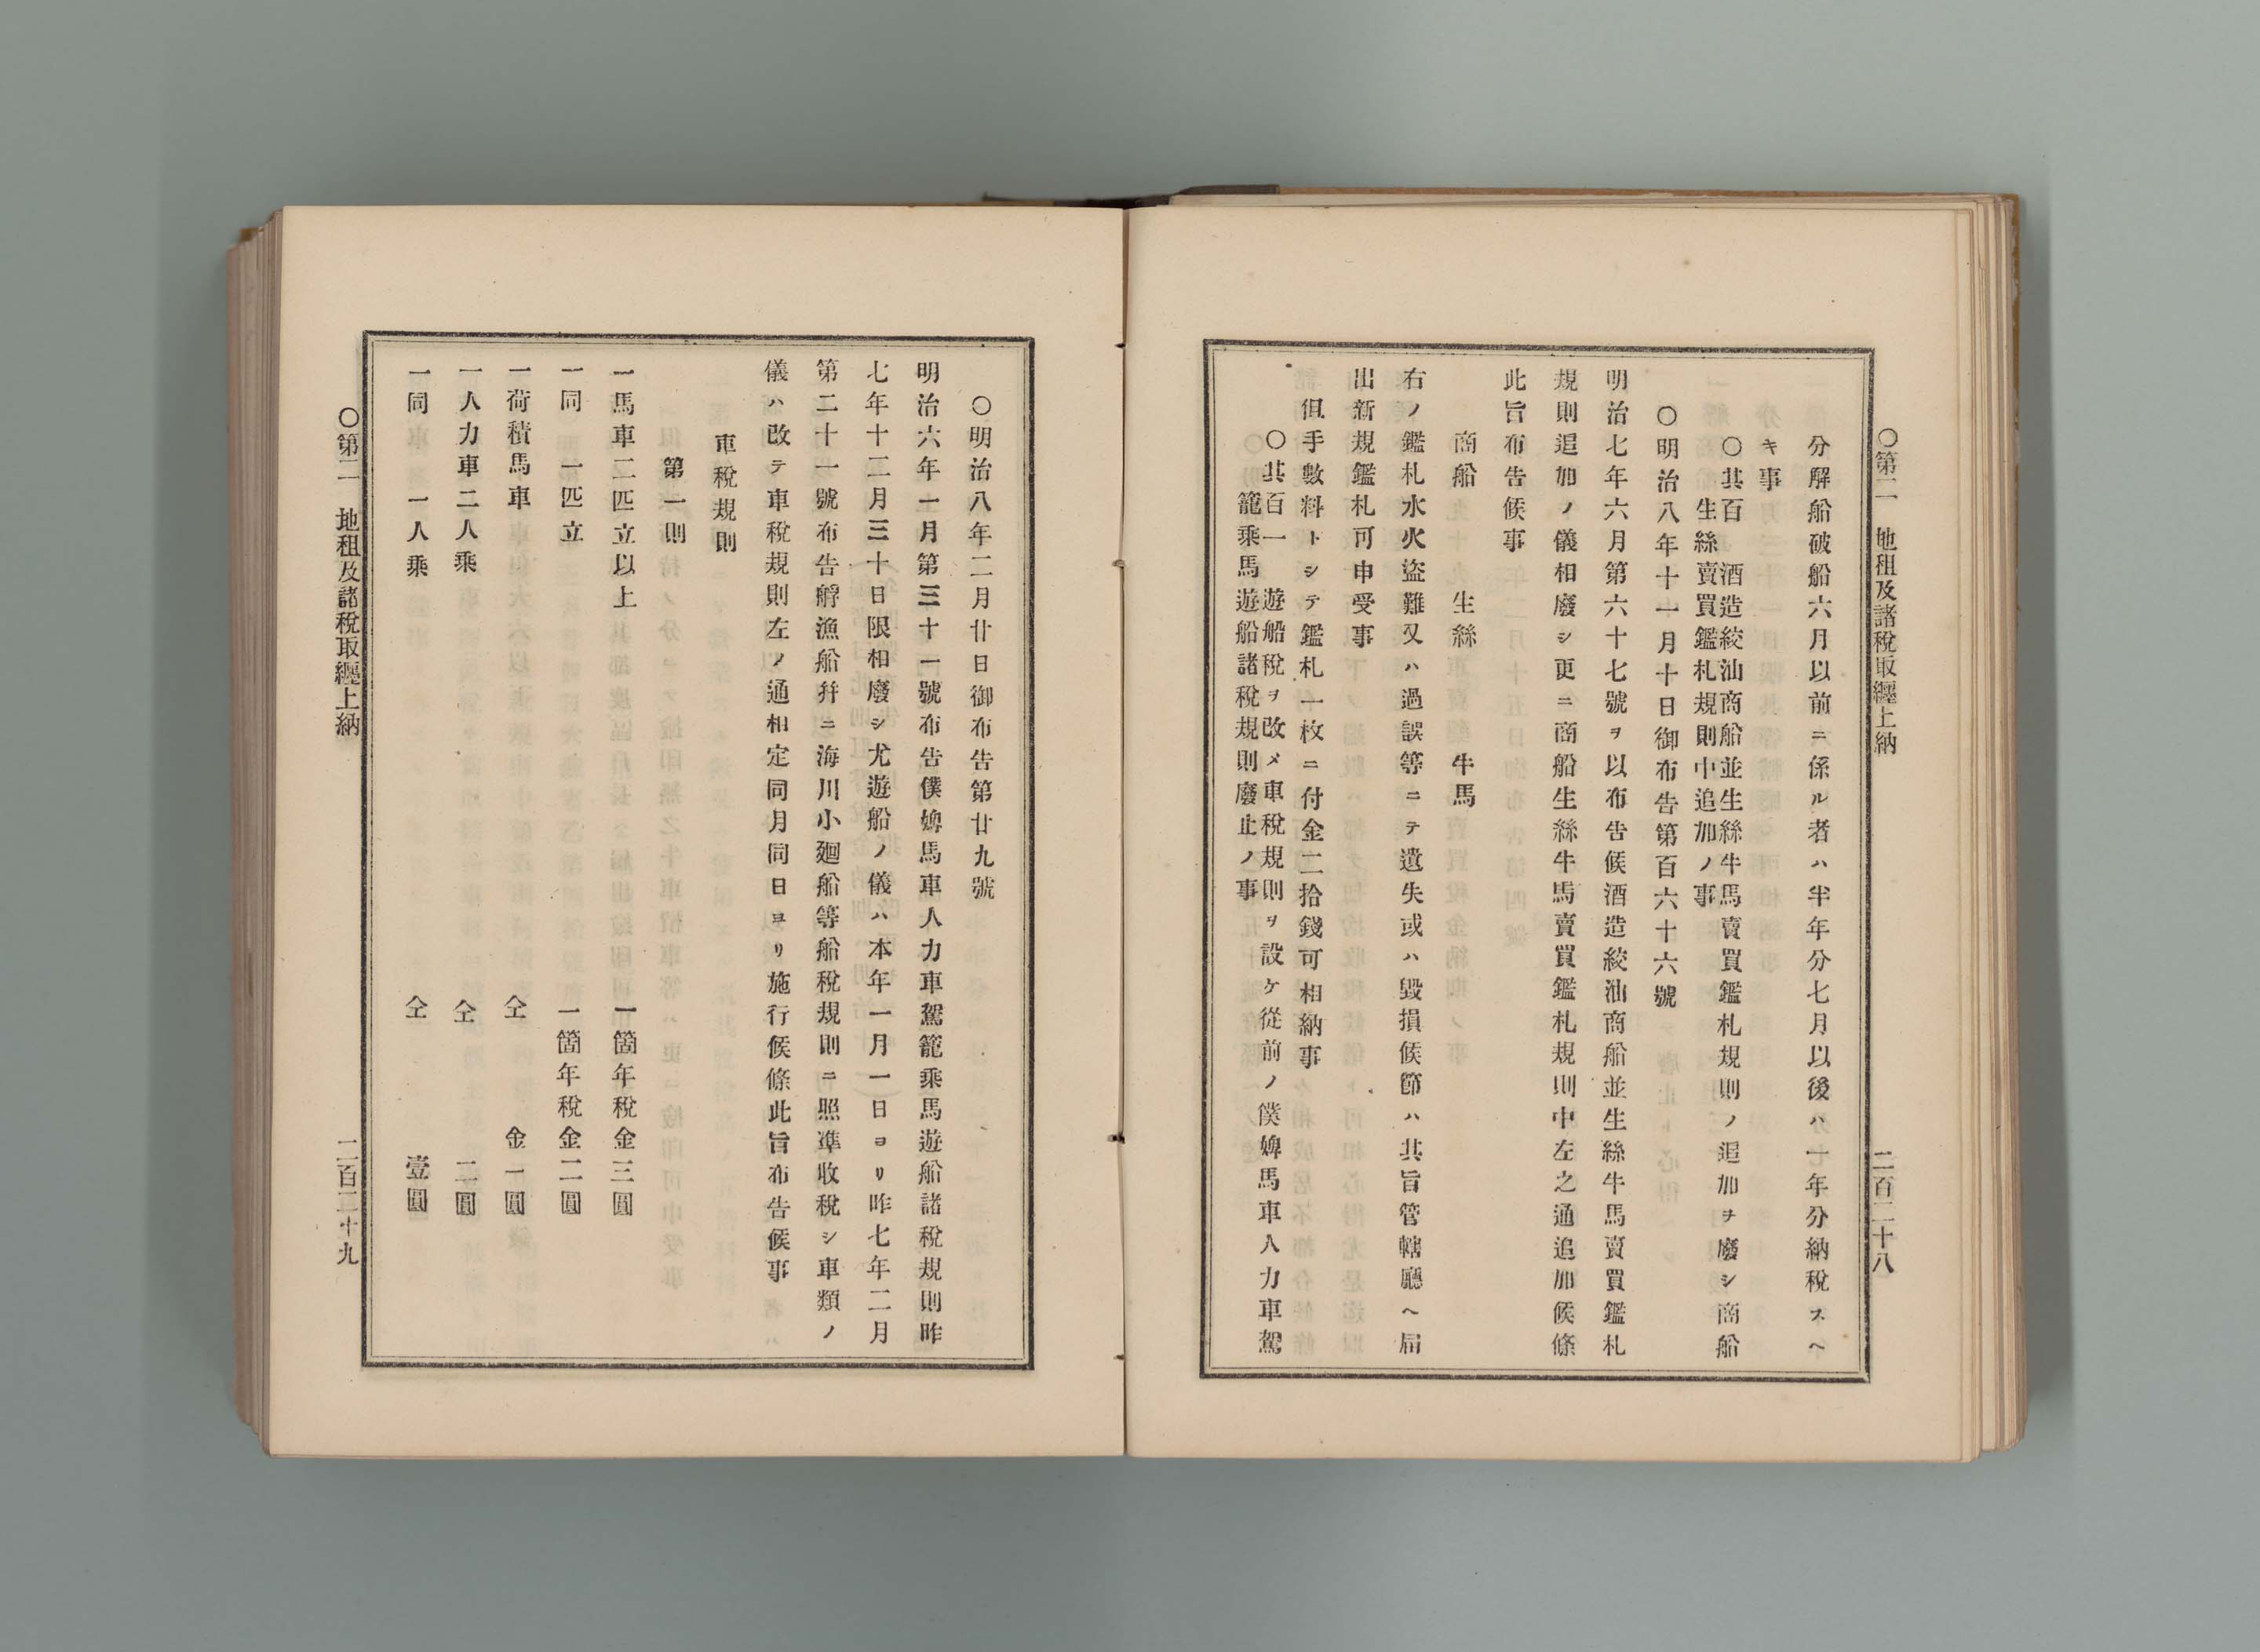 ○第二　地租及諸稅取纒上納
二百二十八
分解船破船六月以前ニ係ル者ハ半年分七月以後ハ一年分納稅スヘ
キ事
○其百　酒造絞油商船並生絲牛馬賣買鑑札規則ノ追加ヲ廢シ商船
生絲賣買鑑札規則中追加ノ事
○明治八年十一月十日御布告第百六十六號
明治七年六月第六十七號ヲ以布告候酒造絞油商船並生絲牛馬賣買鑑札
規則追加ノ儀相廢シ更ニ商船生絲牛馬賣買鑑札規則中左之通追加候條
此旨布告候事
商船　生絲　牛馬
右ノ鑑札水火盜難又ハ過誤等ニテ遺失或ハ毀損候節ハ其旨管轄廳ヘ屆
出新規鑑札可申受事
但手數料トシテ鑑札一枚ニ付金二拾錢可相納事
○其百一　遊船稅ヲ改メ車稅規則ヲ設ケ從前ノ僕婢馬車人力車駕
籠乘馬遊船諸稅規則廢止ノ事
○明治八年二月廿日御布告第廿九號
明治六年一月第三十一號布告僕婢馬車人力車駕籠乘馬遊船諸稅規則昨
七年十二月三十日限相廢シ尤遊船ノ儀ハ本年一月一日ヨリ昨七年二月
第二十一號布告艀漁船幷ニ海川小廻船等船稅規則ニ照準收稅シ車類ノ
儀ハ改テ車稅規則左ノ通相定同月同日ヨリ施行候條此旨布告候事
車稅規則
第一則
一馬車二匹立以上　一箇年稅金三圓
一同　一匹立　一箇年稅金二圓
一荷積馬車　仝　金一圓
一人力車二人乘　仝　二圓
一同　一人乘　仝　壹圓
○第二　地租及諸稅取纒上納
二百二十九